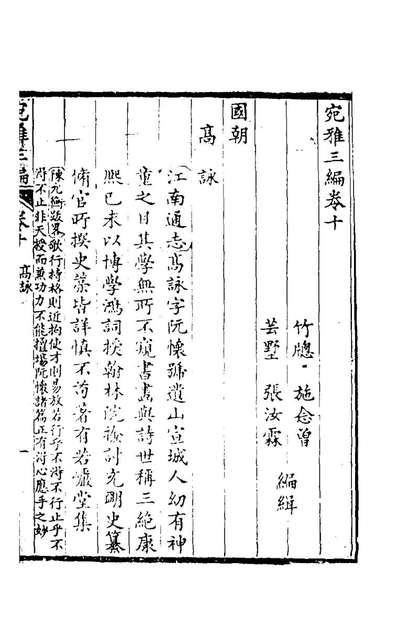 宛雅三編卷十
竹牕 施念曾
芸墅 張汝霖
編緝
國朝
高詠
江南通志高詠字阮懷號遺山宣城人幼有神
童之目其學無所不窺書畫與詩世稱三絶康
熙己未以博學鴻詞授翰林院檢討充明史纂
脩官所撰史藁皆詳慎不茍著有若巖堂集
陳九
歌行持格則近拘使才則易放若行乎不得不行止乎不
得不止非天授而兼功力不能擅場阮懷諸篇正有得心應手之妙
宛雅三編
卷十
高詠
一